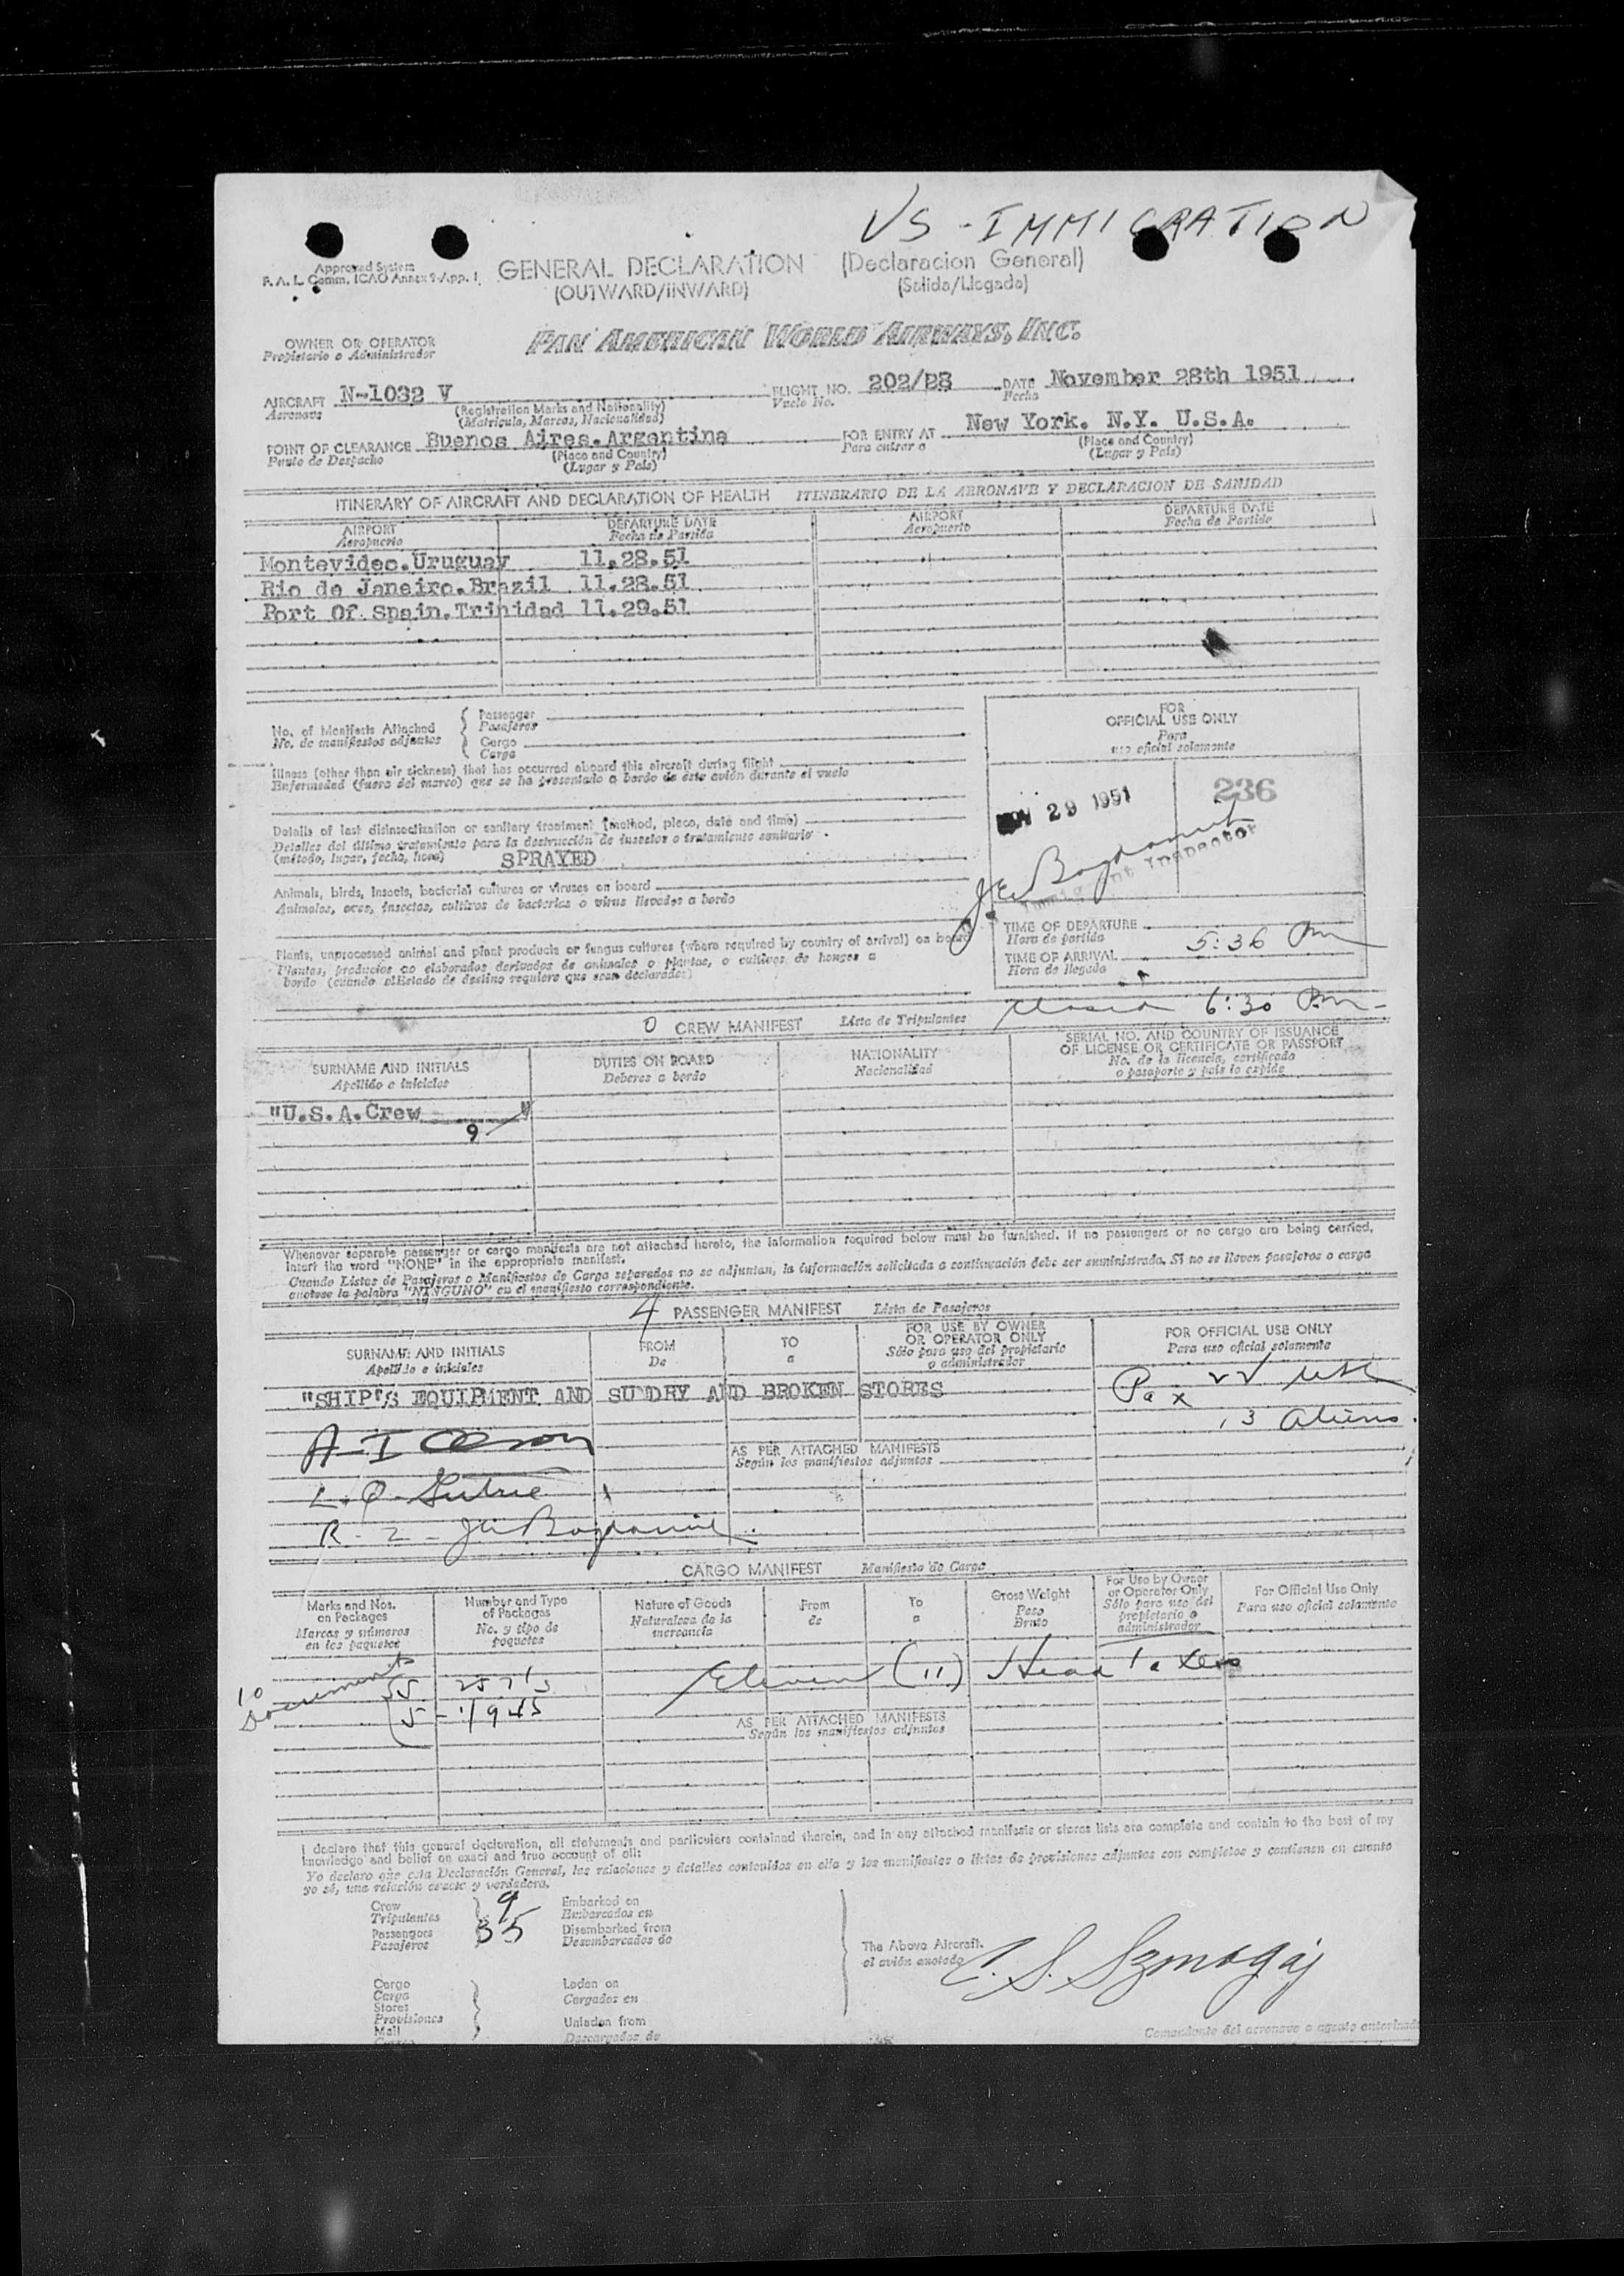 VS - IMMIGRATION
Approved System
F. A. L. Comm. ICAO Annex 9-App. 1
GENERAL DECLARATION (Declaracion General)
(OUTWARD/INWARD) (Salida/Llegada)
OWNER OR OPERATOR
Propietario o Administrador
PAN AMERICAN WORLD AIRWAYS, INC.
AIRCRAFT N-1032 V FLIGHT NO. 202/28 DATE November 28th 1951
Aeronave (Registration Marks and Nationality) Vuelo No. Fecha
(Matricula, Marcas, Nacionalidad)
POINT OF CLEARANCE Buenos Aires.Argentina FOR ENTRY AT New York. N.Y. U.S.A.
Punto de Despacho (Place and Country) Para entrar a (Place and Country)
(Lugar y País) (Lugar y País)
ITINERARY OF AIRCRAFT AND DECLARATION OF HEALTH ITINERARIO DE LA AERONAVE Y DECLARACION DE SANIDAD
AIRPORT DEPARTURE DATE AIRPORT DEPARTURE DATE
Aeropuerto Fecha de Partida Aeropuerto Fecha de Partida
Montevideo.Uruguay 11.28.51
Rio de Janeiro.Brazil 11.28.51
Port Of Spain.Trinidad 11.29.51
No. of Manifests Attached
No. de manifiestos adjuntos
Passenger
Pasajeros
Cargo
Carga
Illness (other than air sickness) that has occurred aboard this aircraft during flight
Enfermedad (fuera del mareo) que se ha presentado a bordo de éste avión durante el vuelo
Details of last disinsectization or sanitary treatment (method, place, date and time)
Detalles del último tratamiento para la destrucción de insectos o tratamiento sanitario
(método, lugar, fecha, hora) SPRAYED
Animals, birds, insects, bacterial cultures or viruses on board
Animales, aves, insectos, cultivos de bacterias o virus llevados a bordo
Plants, unprocessed animal and plant products or fungus cultures (where required by country of arrival) on board
Plantas, productos no elaborados derivados de animales o plantas, o cultivos de hongos a
bordo (cuando el Estado de destino requiere que sean declarados)
FOR
OFFICIAL USE ONLY
Para
uso oficial solamente
NOV 29 1951
236
Immigrant Inspector
TIME OF DEPARTURE
Hora de partida
5:36 Pm
TIME OF ARRIVAL
Hora de llegada
6:30 Pm
0 CREW MANIFEST Lista de Tripulantes
SURNAME AND INITIALS DUTIES ON BOARD NATIONALITY SERIAL NO. AND COUNTRY OF ISSUANCE
OF LICENSE OR CERTIFICATE OR PASSPORT
Apellido e iniciales Deberes a bordo Nacionalidad No. de la licencia, certificado
o pasaporte y país lo expide
"U.S.A.Crew "
9
Whenever separate passenger or cargo manifests are not attached hereto, the information required below must be furnished. If no passengers or no cargo are being carried,
insert the word "NONE" in the appropriate manifest.
Cuando Listas de Pasajeros o Manifiestos de Carga separados no se adjuntan, la información solicitada a continuación debe ser suministrada. Si no se lleven pasajeros o carga
anotese la palabra "NINGUNO" en el manifiesto correspondiente.
4 PASSENGER MANIFEST Lista de Pasajeros
SURNAME AND INITIALS FROM TO FOR USE BY OWNER
OR OPERATOR ONLY FOR OFFICIAL USE ONLY
Apellido e iniciales De a Sólo para uso del propietario
o administrador Para uso oficial solamente
"SHIP'S EQUIPMENT AND SUNDRY AND BROKEN STORES
Pax
13 Aliens
AS PER ATTACHED MANIFESTS
Según los manifiestos adjuntos
CARGO MANIFEST Manifiesto de Carga
Marks and Nos.
on Packages
Marcas y números
en los paquetes
Number and Type
of Packages
No. y tipo de
paquetes
Nature of Goods
Naturaleza de la
mercancia
From
de
To
a
Gross Weight
Peso
Bruto
For Use by Owner
or Operator Only
Sólo para uso del
propietario o
administrador
For Official Use Only
Para uso oficial solamente
10
Documents
5 257's
5 - 194's
Eleven (11) Head Taxes
AS PER ATTACHED MANIFESTS
Según los manifiestos adjuntos
I declare that this general declaration, all statements and particulars contained therein, and in any attached manifests or stores lists are complete and contain to the best of my
knowledge and belief an exact and true account of all:
Yo declaro que esta Declaración General, las relaciones y detalles contenidos en ella y los manifiestos o listas de provisiones adjuntos son completos y contienen en cuanto
yo sé, una relación exacta y verdadera.
Crew 9 Embarked on
Tripulantes Embarcados en
Passengers 35 Disembarked from
Pasajeros Desembarcados de
The Above Aircraft.
el avión anotado
Cargo Laden on
Carga Cargados en
Stores
Provisiones Unladen from
Mail Descargados de
Comandante del aeronave o agente autorizado